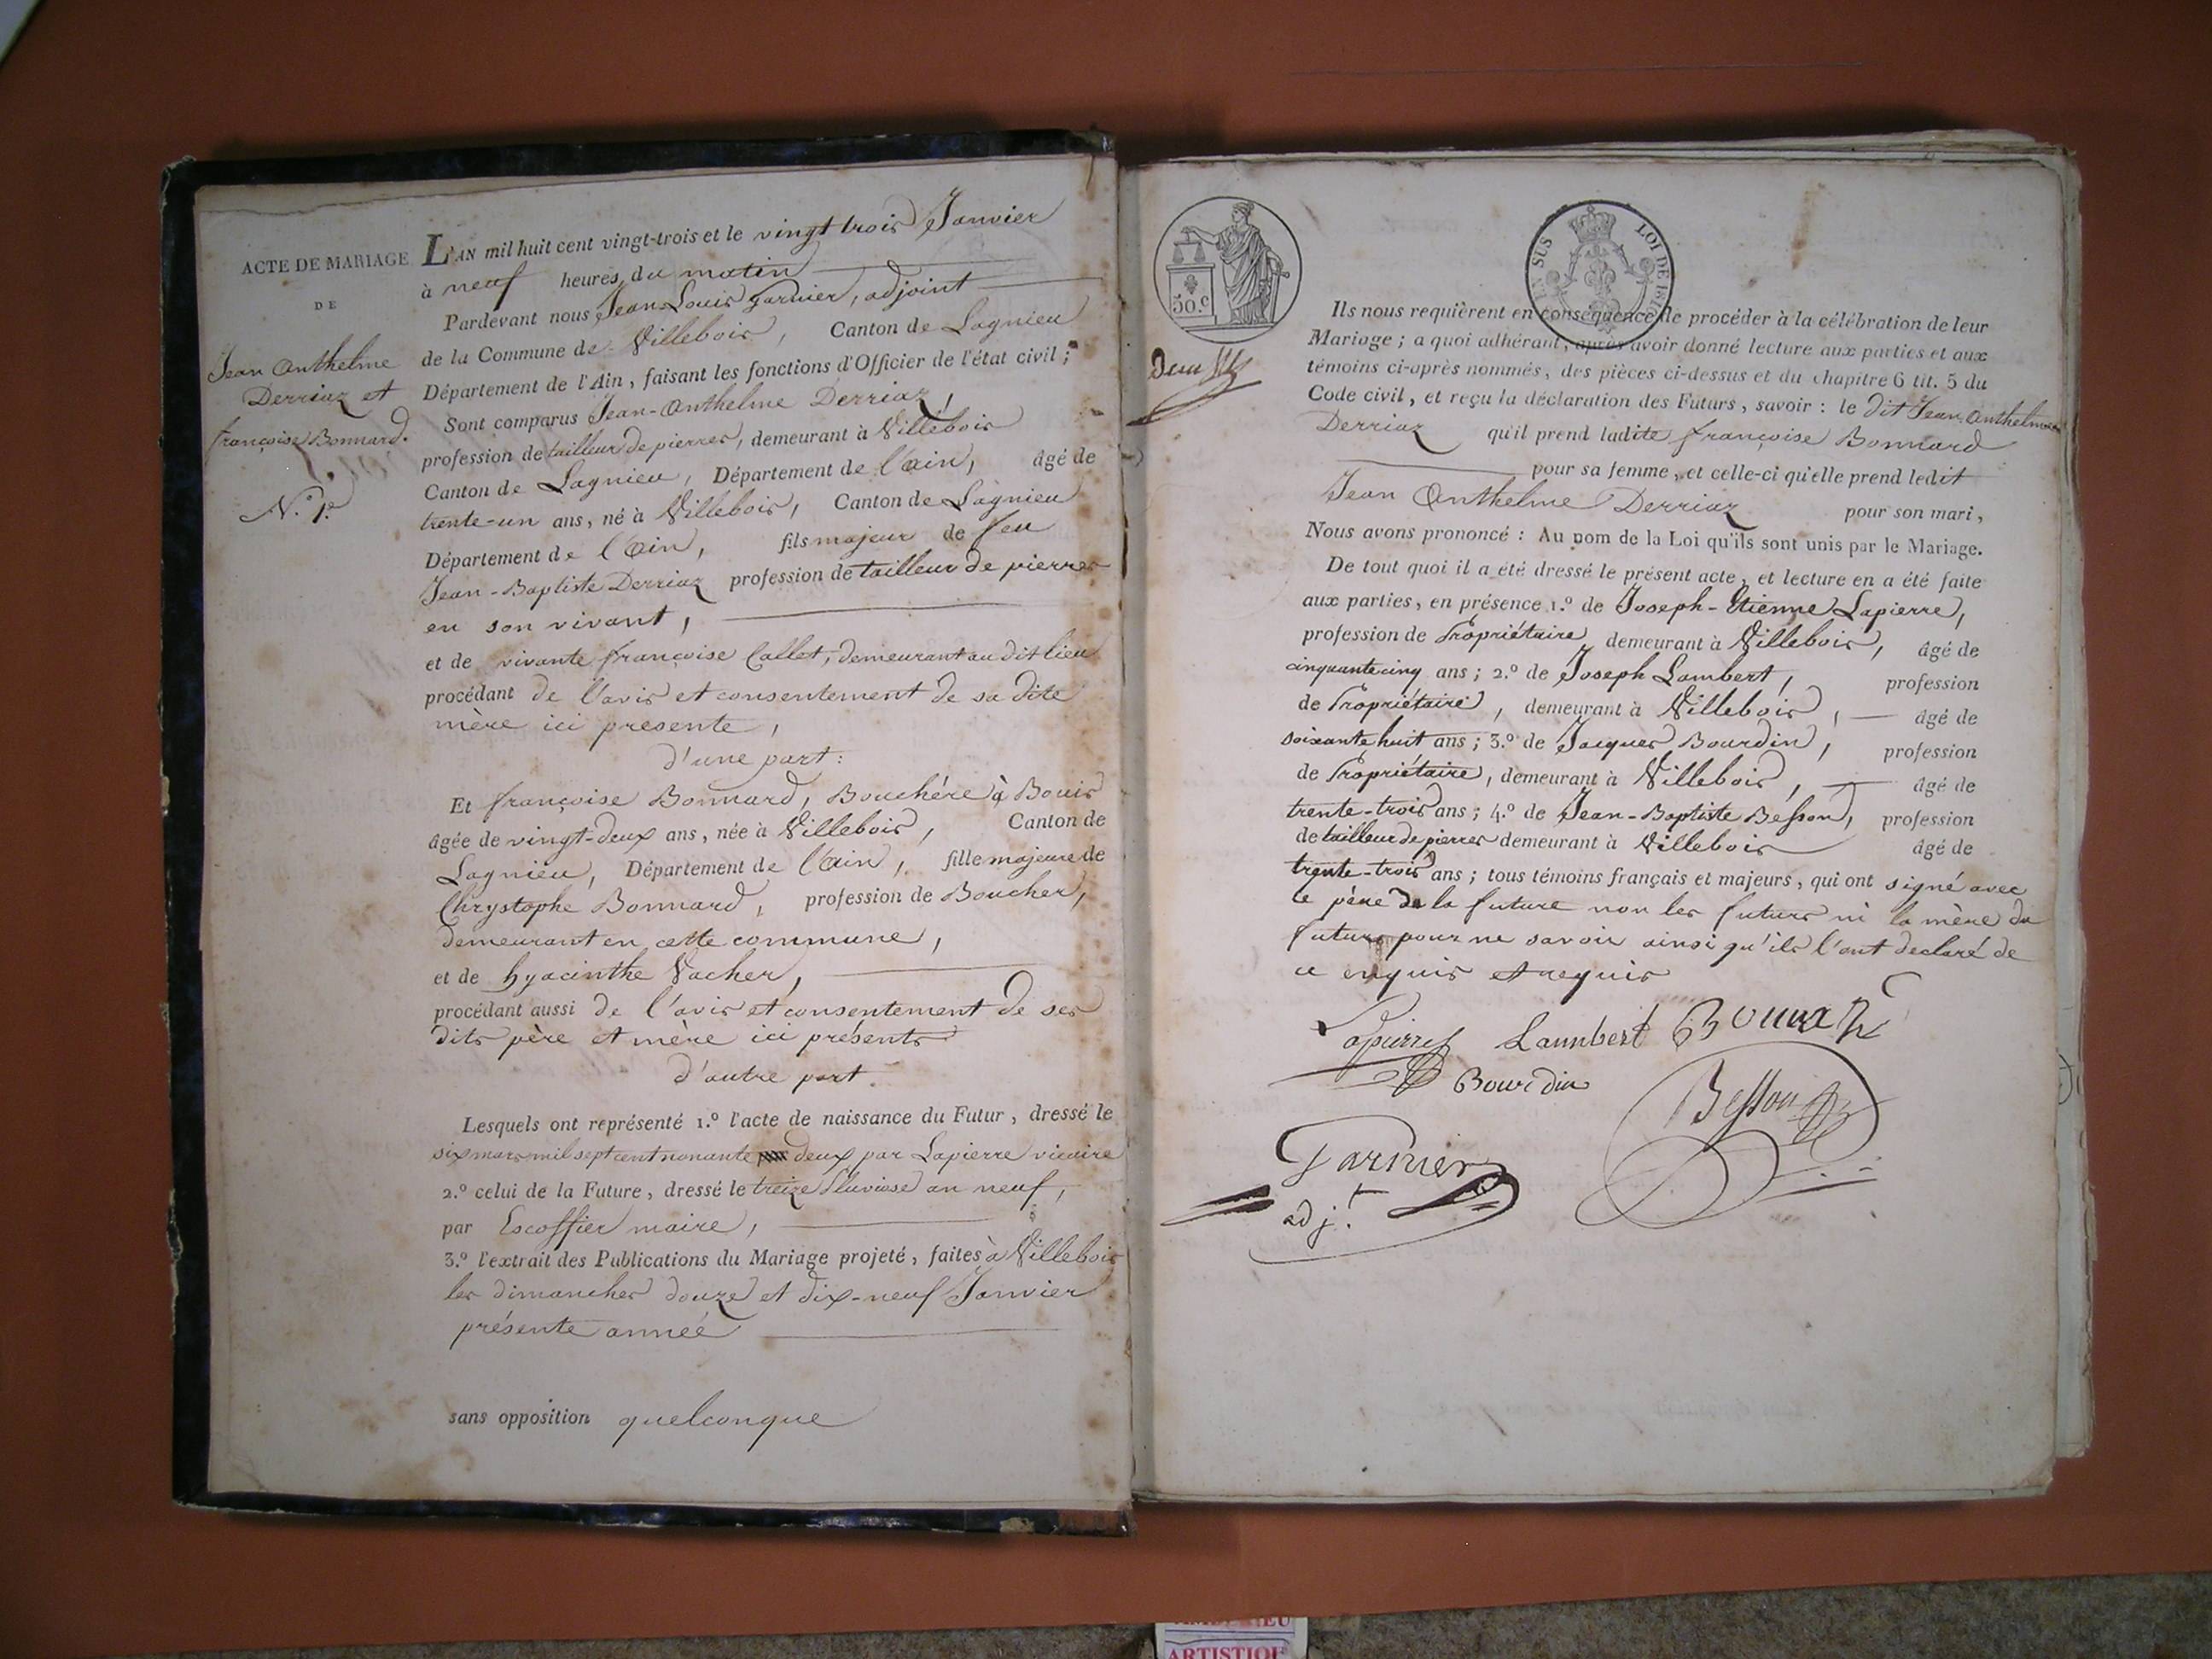 ACTE DE MARIAGE
DE
Jean Anthelme
Derriaz et
françoise Bonnard.
N.º 1.er
L'AN mil huit cent vingt-trois et le vingt trois Janvier
à neuf heures du matin
Pardevant nous Jean Louis Garnier, adjoint
de la Commune de Villebois, Canton de Lagnieu
Département de l'Ain, faisant les fonctions d'Officier de l'état civil;
Sont comparus Jean-Anthelme Derriaz,
profession de tailleur de pierres, demeurant à Villebois
Canton de Lagnieu, Département de l'ain, âgé de
trente-un ans, né à Villebois, Canton de Lagnieu
Département de l'ain, fils majeur de feu
Jean-Baptiste Derriaz profession de tailleur de pierres
en son vivant,
et de vivante françoise Callet, demeurant au dit lieu
procédant de l'avis et consentement de sa dite
mère ici presente,
d'une part:
Et françoise Bonnard, Bouchére à Bouis
âgée de vingt-deux ans, née à Villebois, Canton de
Lagnieu, Département de l'ain, fille majeure de
Chrystophe Bonnard, profession de Boucher,
demeurant en cette commune,
et de hyacinthe Vacher,
procédant aussi de l'avis et consentement de ses
dits père et mère ici présents
d'autre part.
Lesquels ont représenté 1.º l'acte de naissance du Futur, dressé le
six mars mil sept cent nonante deux par Lapierre vicaire
2.º celui de la Future, dressé le treize Pluviose an neuf,
par Escoffier maire,
3.º l'extrait des Publications du Mariage projeté, faites à Villebois
les dimanches douze et dix-neuf Janvier
présente année
sans opposition quelconque
50.c
EN SUS
LOI DE 1816
Ils nous requièrent en conséquence de procéder à la célébration de leur
Mariage; a quoi adhérant, après avoir donné lecture aux parties et aux
témoins ci-après nommés, des pièces ci-dessus et du chapitre 6 tit. 5 du
Code civil, et reçu la déclaration des Futurs, savoir: le dit Jean-Anthelme
Derriaz qu'il prend ladite françoise Bonnard
pour sa femme, et celle-ci qu'elle prend ledit
Jean Anthelme Derriaz pour son mari,
Nous avons prononcé: Au nom de la Loi qu'ils sont unis par le Mariage.
De tout quoi il a été dressé le présent acte, et lecture en a été faite
aux parties, en présence 1.º de Joseph-Etienne Lapierre,
profession de Propriétaire demeurant à Villebois, âgé de
cinquante cinq ans; 2.º de Joseph Lambert, profession
de Propriétaire, demeurant à Villebois, âgé de
soixante huit ans; 3.º de Jacques Bourdin, profession
de Propriétaire, demeurant à Villebois, âgé de
trente-trois ans; 4.º de Jean-Baptiste Besson, profession
de tailleur de pierres demeurant à Villebois âgé de
trente-trois ans; tous témoins français et majeurs, qui ont signé avec
le père de la future non les futurs ni la mère du
futur pour ne savoir ainsi qu'ils l'ont declaré de
ce enquis et requis
Lapierre Lambert Bounard
Bourdin
Besson
Garnier
adj.t
ARTISTIQUE